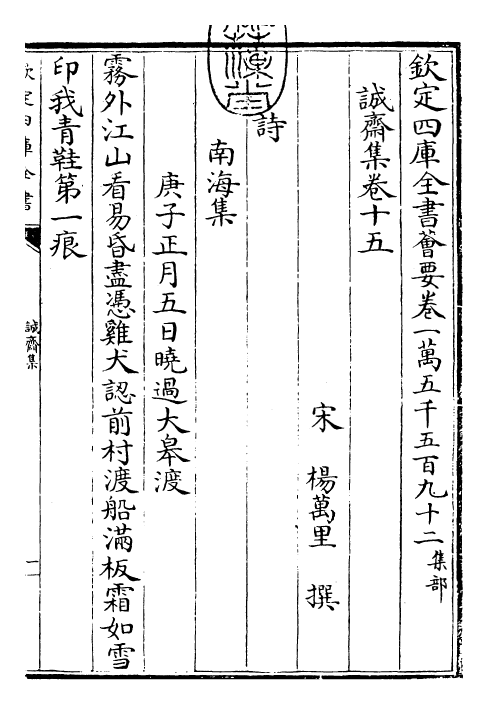 欽定四庫全書薈要卷一萬五千五百九十二集部
誠齋集卷十五
宋　楊萬里　撰
詩
南海集
庚子正月五日曉過大皋渡
霧外江山看易昏盡憑雞犬認前村渡船滿板霜如雪
印我青鞋第一痕
欽定四庫全書
誠齋集
一